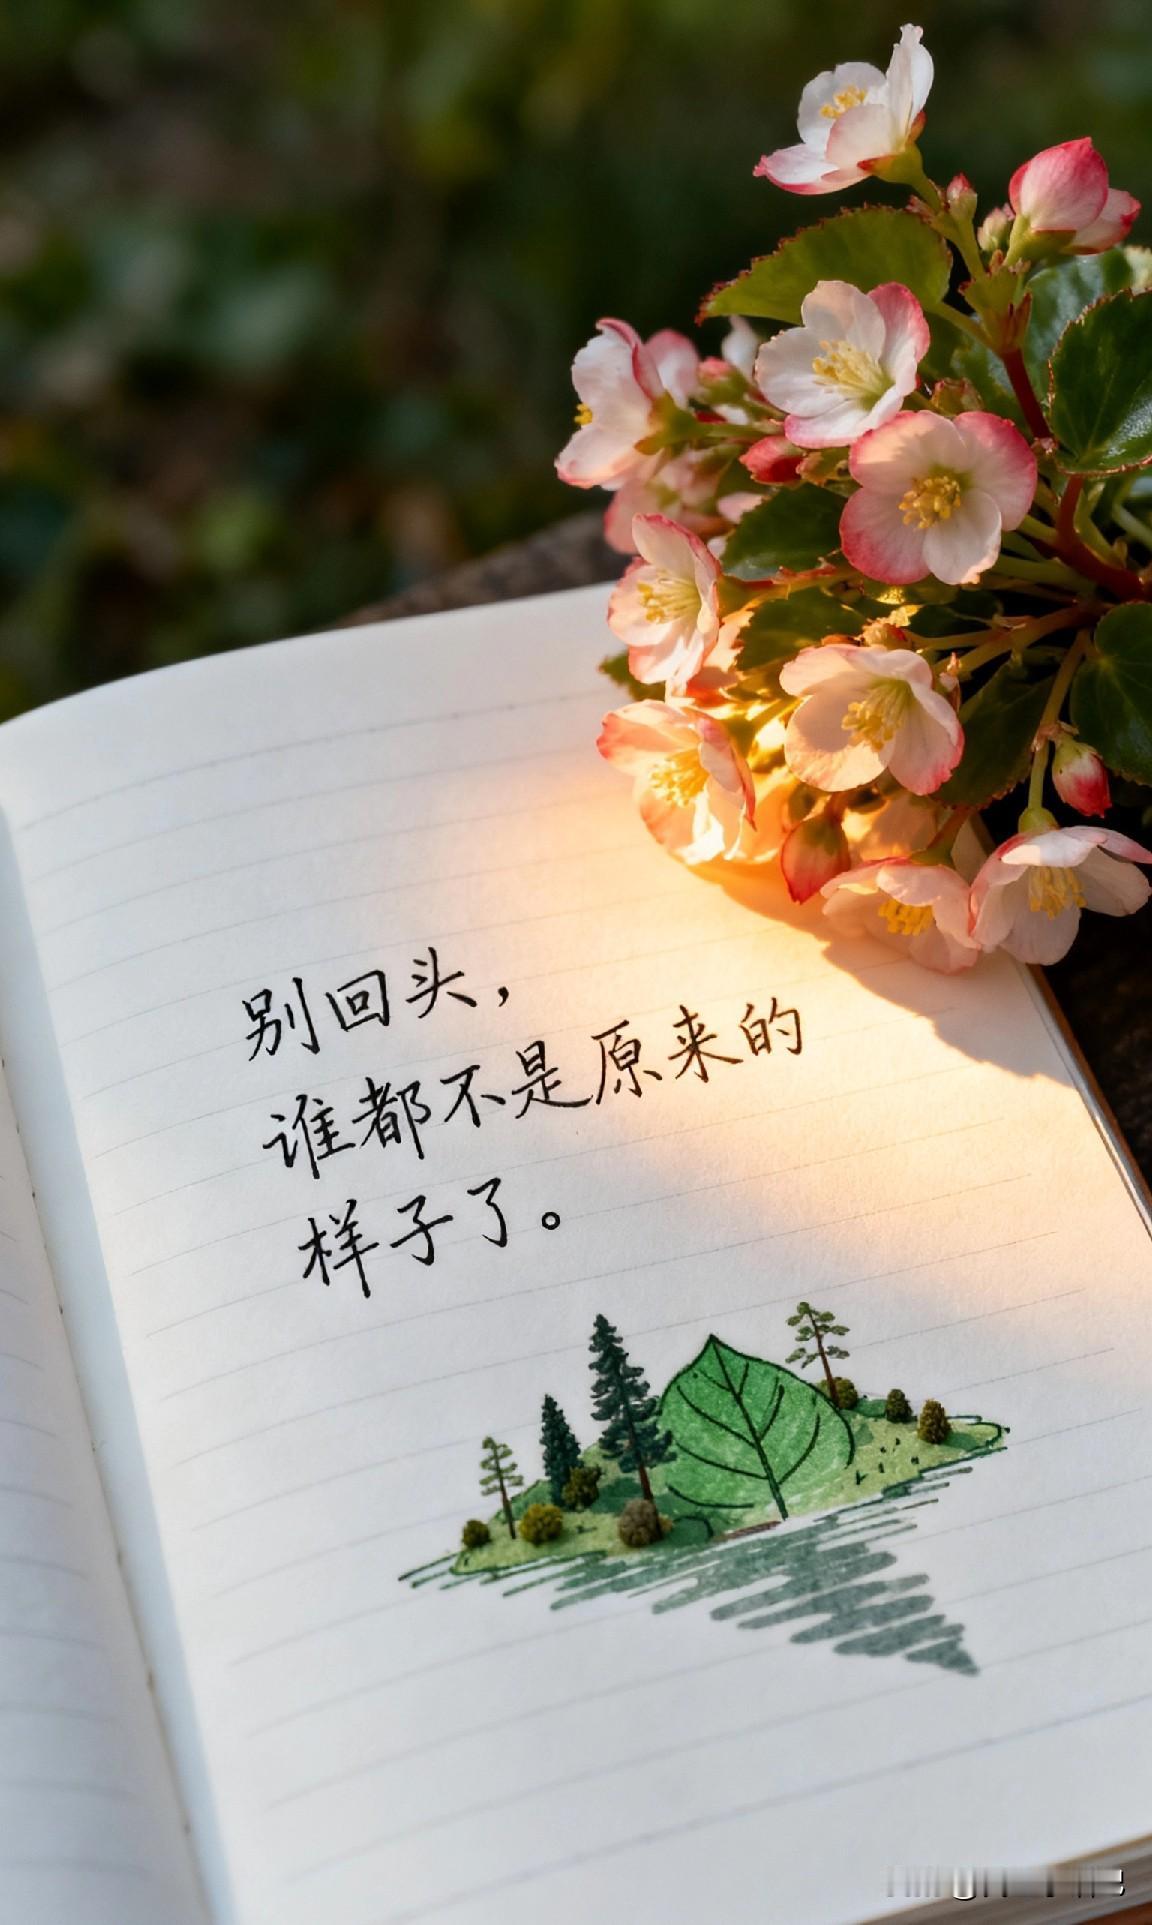 别回头，
谁都不是原来的
样子了。